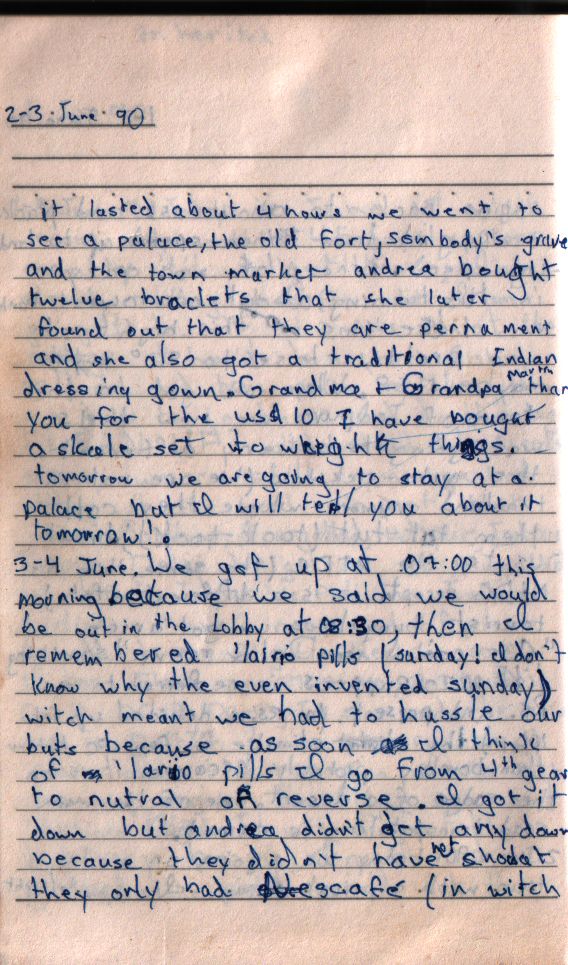 2-3. June. 90
it lasted about 4 hours we went to
see a palace, the old fort, sombody's grave
and the town market andrea bought
twelve braclets that she later
found out that they are pernament
and she also got a traditional Indian
dressing gown. Grandma + Grandpa Martin than
you for the us$ 10 I have bought
a skale set to wheight things.
tomorrow we are going to stay at a
palace but I will tell you about it
tomorrow!.
3-4 June. We got up at 07:00 this
morning because we said we would
be out in the Lobby at 08:30, then I
remembered 'lario pills (sunday! I don't
know why the even invented sunday)
witch meant we had to hussle our
buts because as soon as I think
of 'lario pills I go from 4th gear
to nutral or reverse. I got it
down but andrea didn't get any down
because they didn't have
they only had Nescafé (in witch